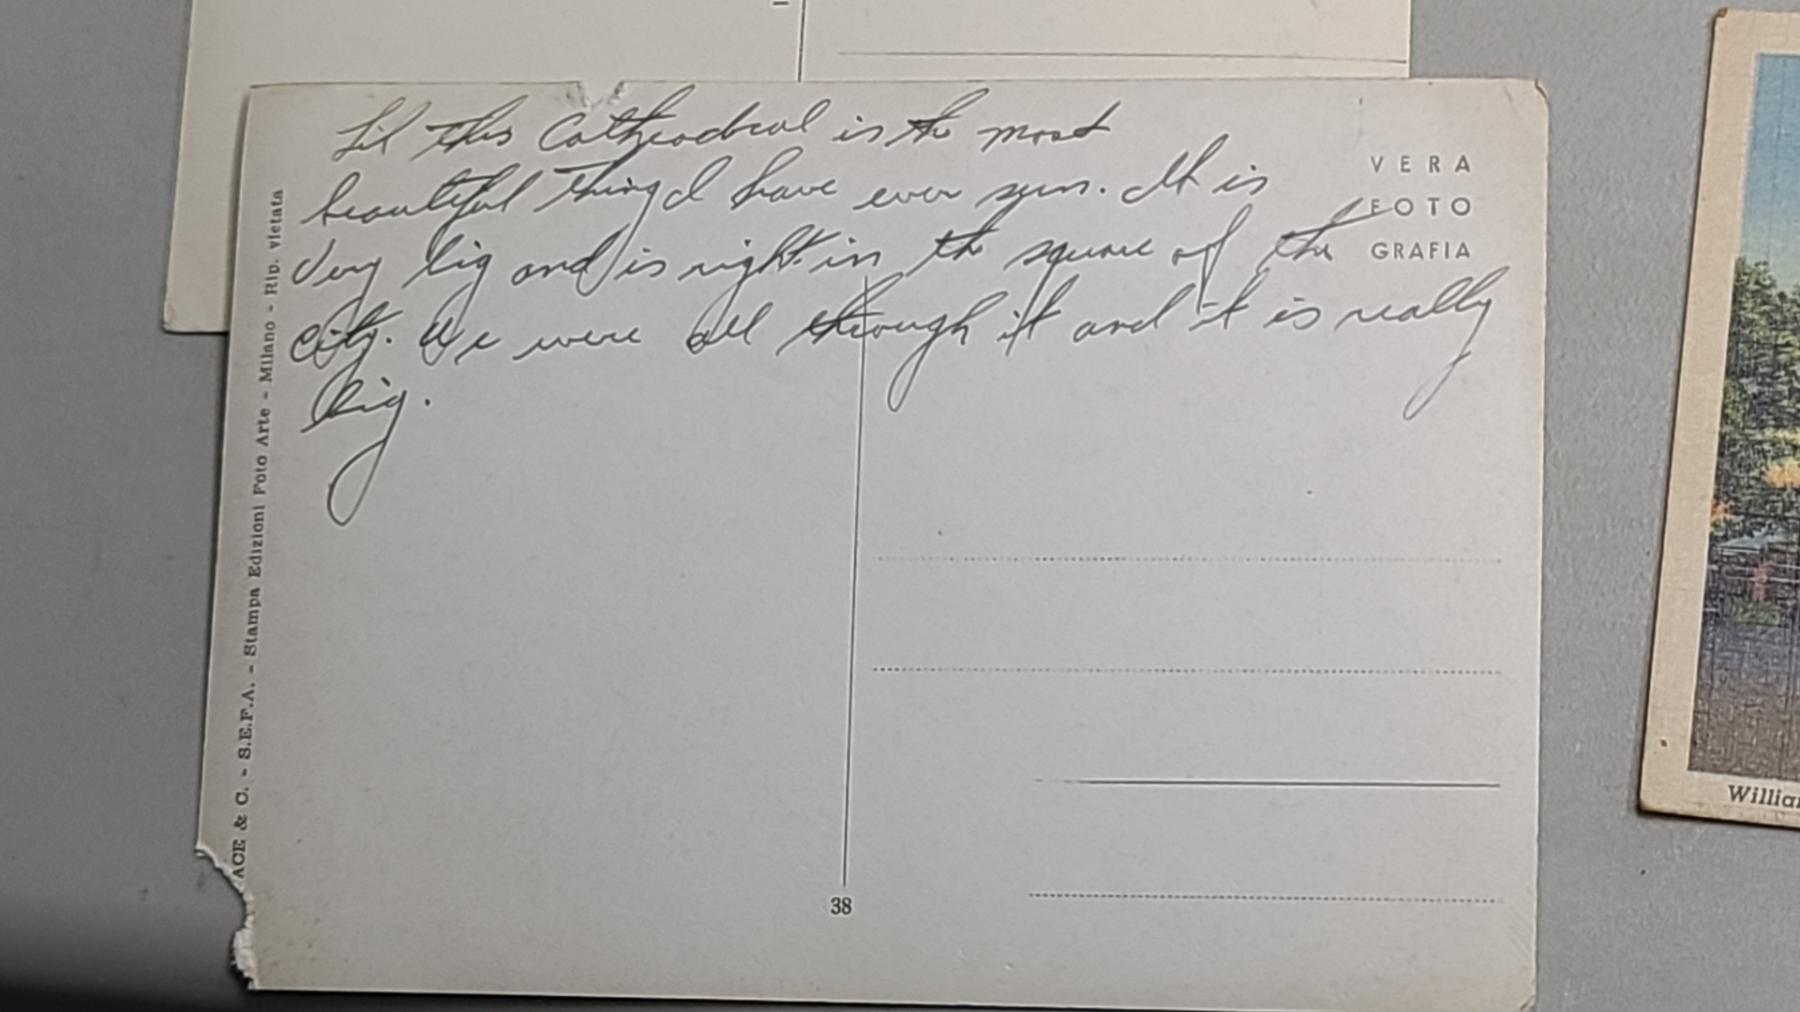 Lil this Cathedral is the most
beautiful thing I have ever seen. It is
Very big and is right in the square of the
City. We were all through it and it is really
big.
VERA
FOTO
GRAFIA
ACE & C. - S.E.F.A. - Stampa Edizioni Foto Arte - Milano - Rip. vietata
38
Willia